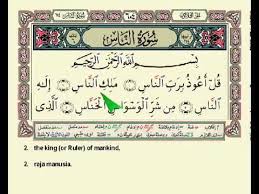 ٦٠٤
سُورَةُ النَّاسِ
بِسْمِ اللَّهِ الرَّحْمَٰنِ الرَّحِيمِ
قُلْ أَعُوذُ بِرَبِّ النَّاسِ ۝ مَلِكِ النَّاسِ ۝ إِلَٰهِ
النَّاسِ ۝ مِن شَرِّ الْوَسْوَاسِ الْخَنَّاسِ ۝ الَّذِي
2. the king (or Ruler) of mankind,
2. raja manusia.